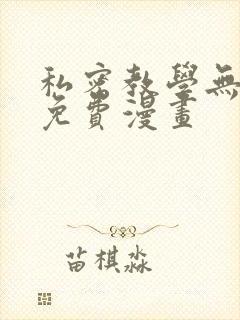 私密教學無
免費漫畫
苗棋淼